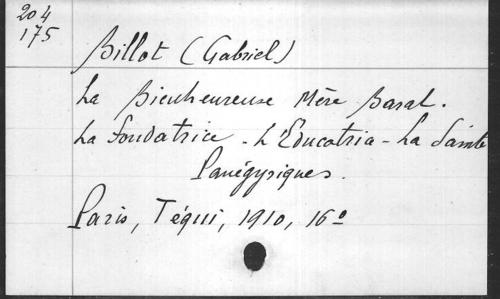 204
175
Billot (Gabriel)
La Bienheureuse Mère Barat.
La Fondatrice - L'Educatria - La Sainte
Panégyriques.
Paris, Téqui, 1910, 16º